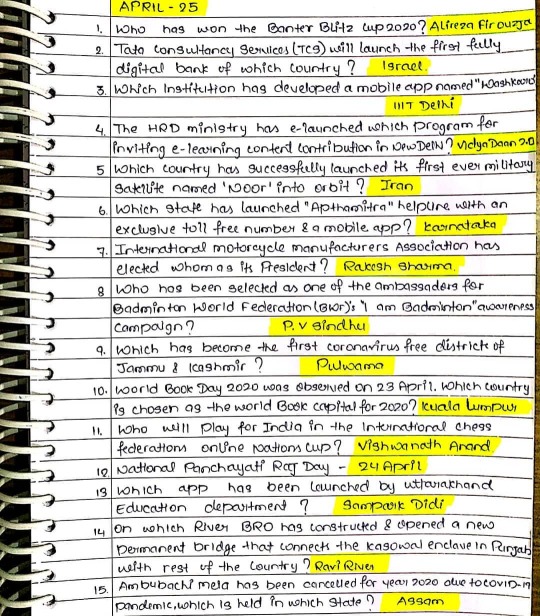 APRIL - 25
1. Who has won the Banter Blitz cup 2020? Alireza Firouzja
2. Tata Consultancy Services (TCS) will launch the first fully
digital bank of which country? Israel.
3. Which Institution has developed a mobile app named "Washkaro"
IIIT Delhi
4. The HRD ministry has e-launched which program for
inviting e-learning content contribution in New Delhi? VidyaDaan 2.0
5 Which country has successfully launched its first ever military
Satellite named 'NOOR' into orbit? Iran
6. Which State has launched "Apthamitra" helpline with an
exclusive toll free number & a mobile app? Karnataka
7. International motorcycle manufacturers Association has
elected whom as its President? Rakesh Sharma.
8 Who has been selected as one of the ambassadors for
Badminton World Federation (BWF)'s "I am Badminton" awareness
Campaign? P.V Sindhu
9. Which has become the first coronavirus free district of
Jammu & Kashmir? Pulwama
10. World Book Day 2020 was observed on 23 April. Which country
is chosen as the world Book capital for 2020? Kuala Lumpur
11. Who will play for India in the International chess
federations online Nations Cup? Vishwanath Anand
12 National Panchayati Raj Day - 24 April
13 Which app has been launched by uttarakhand
Education department? Sampark Didi
14 On which River BRO has constructed & opened a new
permanent bridge that connects the kasowal enclave in Punjab
with rest of the country? Ravi River
15. Ambubachi mela has been cancelled for year 2020 due to covid-19
pandemic, which is held in which State? Assam